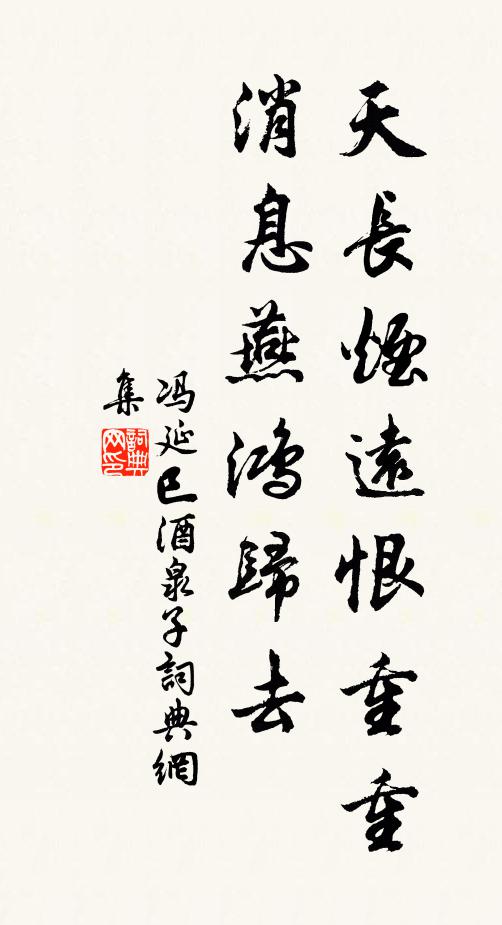 天長煙遠恨重重
消息燕鴻歸去
馮延巳酒泉子詞典網
集
詞典
网印